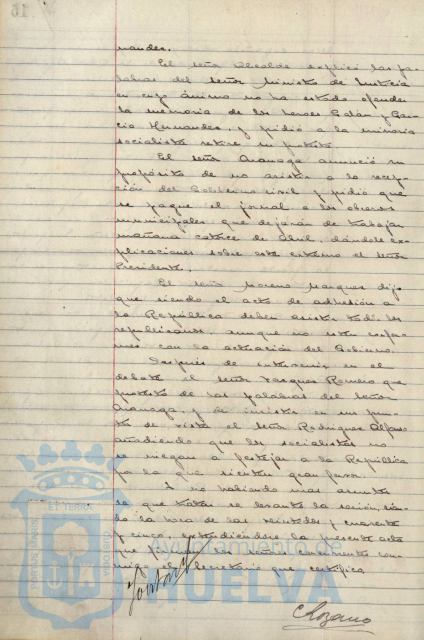 nandez.
El señor Alcalde explicó las pa-
labras del señor Ministro de Justicia
en cuyo ánimo no ha estado ofender
la memoria de los heroes Galán y Gar-
cia Hernandez, y pidió a la minoria
socialista retire su protesta.
El señor Aranaga anunció su
propósito de no asistir a la recep-
ción del Gobierno civil y pidió que
se pague el jornal a los obreros
municipales que dejarán de trabajar
mañana catorce de Abril, dándole ex-
plicaciones sobre este extremo el señor
Presidente.
El señor Moreno Marquez dijo
que siendo el acto de adhesión a
la República deben asistir todos los
republicanos, aunque no esten confor-
mes con la actuación del Gobierno.
Despues de intervenir en el
debate el señor Vazquez Romero que
protestó de las palabras del señor
Aranaga, y de insistir en su pun-
to de vista el señor Rodriguez Alfonso
añadiendo que los socialistas no
se niegan a festejar a la República
por la que sienten gran fervor.
Y no habiendo mas asuntos
de que tratar se levantó la sesión, sien-
do la hora de las veintidos y cuarenta
y cinco, extendiéndose la presente acta
que firman los señores concurrentes con-
migo el Secretario que certifico.
ET TERRÆ
CUSTODIA
Ayuntamiento de
HUELVA